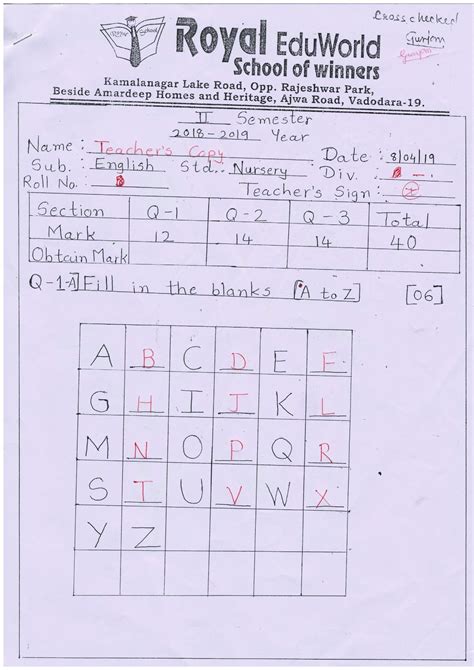 Cross checked
Gunjan
Royal School
Royal EduWorld
School of winners
Kamalanagar Lake Road, Opp. Rajeshwar Park,
Beside Amardeep Homes and Heritage, Ajwa Road, Vadodara-19.
II Semester
2018-2019 Year
Name : Teacher's Copy Date : 8/04/19
Sub. : English Std.. Nursery Div. :
Roll No. : Teacher's Sign :
Section Q-1 Q-2 Q-3 Total
Mark 12 14 14 40
Obtain Mark
Q-1-A] Fill in the blanks [A to Z] [06]
A B C D E F
G H I J K L
M N O P Q R
S T U V W X
Y Z